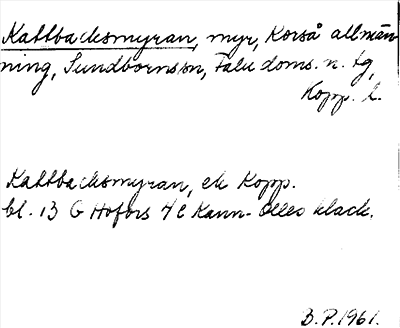 Kattbacksmyran, myr, Korså allmän-
ning, Sundbornssn, Falu doms. n. tg,
Kopp. l.
Kattbacksmyran, ek Kopp.
bl. 13 G Hofors 4 c Kann-Olles klack.
B.P. 1961.